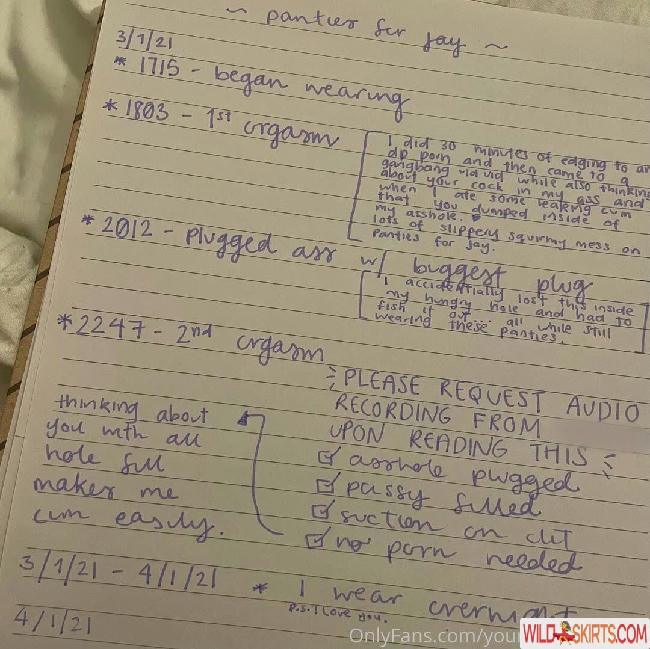 ~ panties for Jay ~
3/1/21
* 1715 - began wearing
* 1803 - 1st orgasm
I did 30 minutes of edging to an
dp porn and then came to a
gangbang vid while also thinking
about your cock in my ass and
when I ate some leaking cum
that you dumped inside of
my asshole.
lots of slippery squirmy mess on
panties for jay.
* 2012 - plugged ass w/ biggest plug
I accidentially lost this inside
my hungry hole and had to
fish it out... all while still
wearing these panties.
* 2247 - 2nd orgasm
PLEASE REQUEST AUDIO
RECORDING FROM
UPON READING THIS
☑ asshole plugged
☑ pussy filled
☑ suction on clit
☑ no porn needed
thinking about
you with all
hole full
makes me
cum easily.
3/1/21 - 4/1/21 * I wear overnight
p.s. I love you.
4/1/21
OnlyFans.com/your
WILDSKIRTS.COM